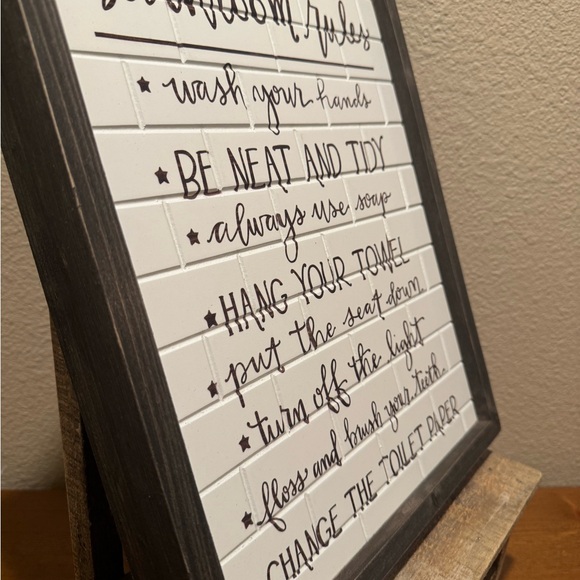 bathroom rules
★ wash your hands
★ BE NEAT AND TIDY
★ always use soap
★ HANG YOUR TOWEL
★ put the seat down
★ turn off the light
★ floss and brush your teeth
CHANGE THE TOILET PAPER